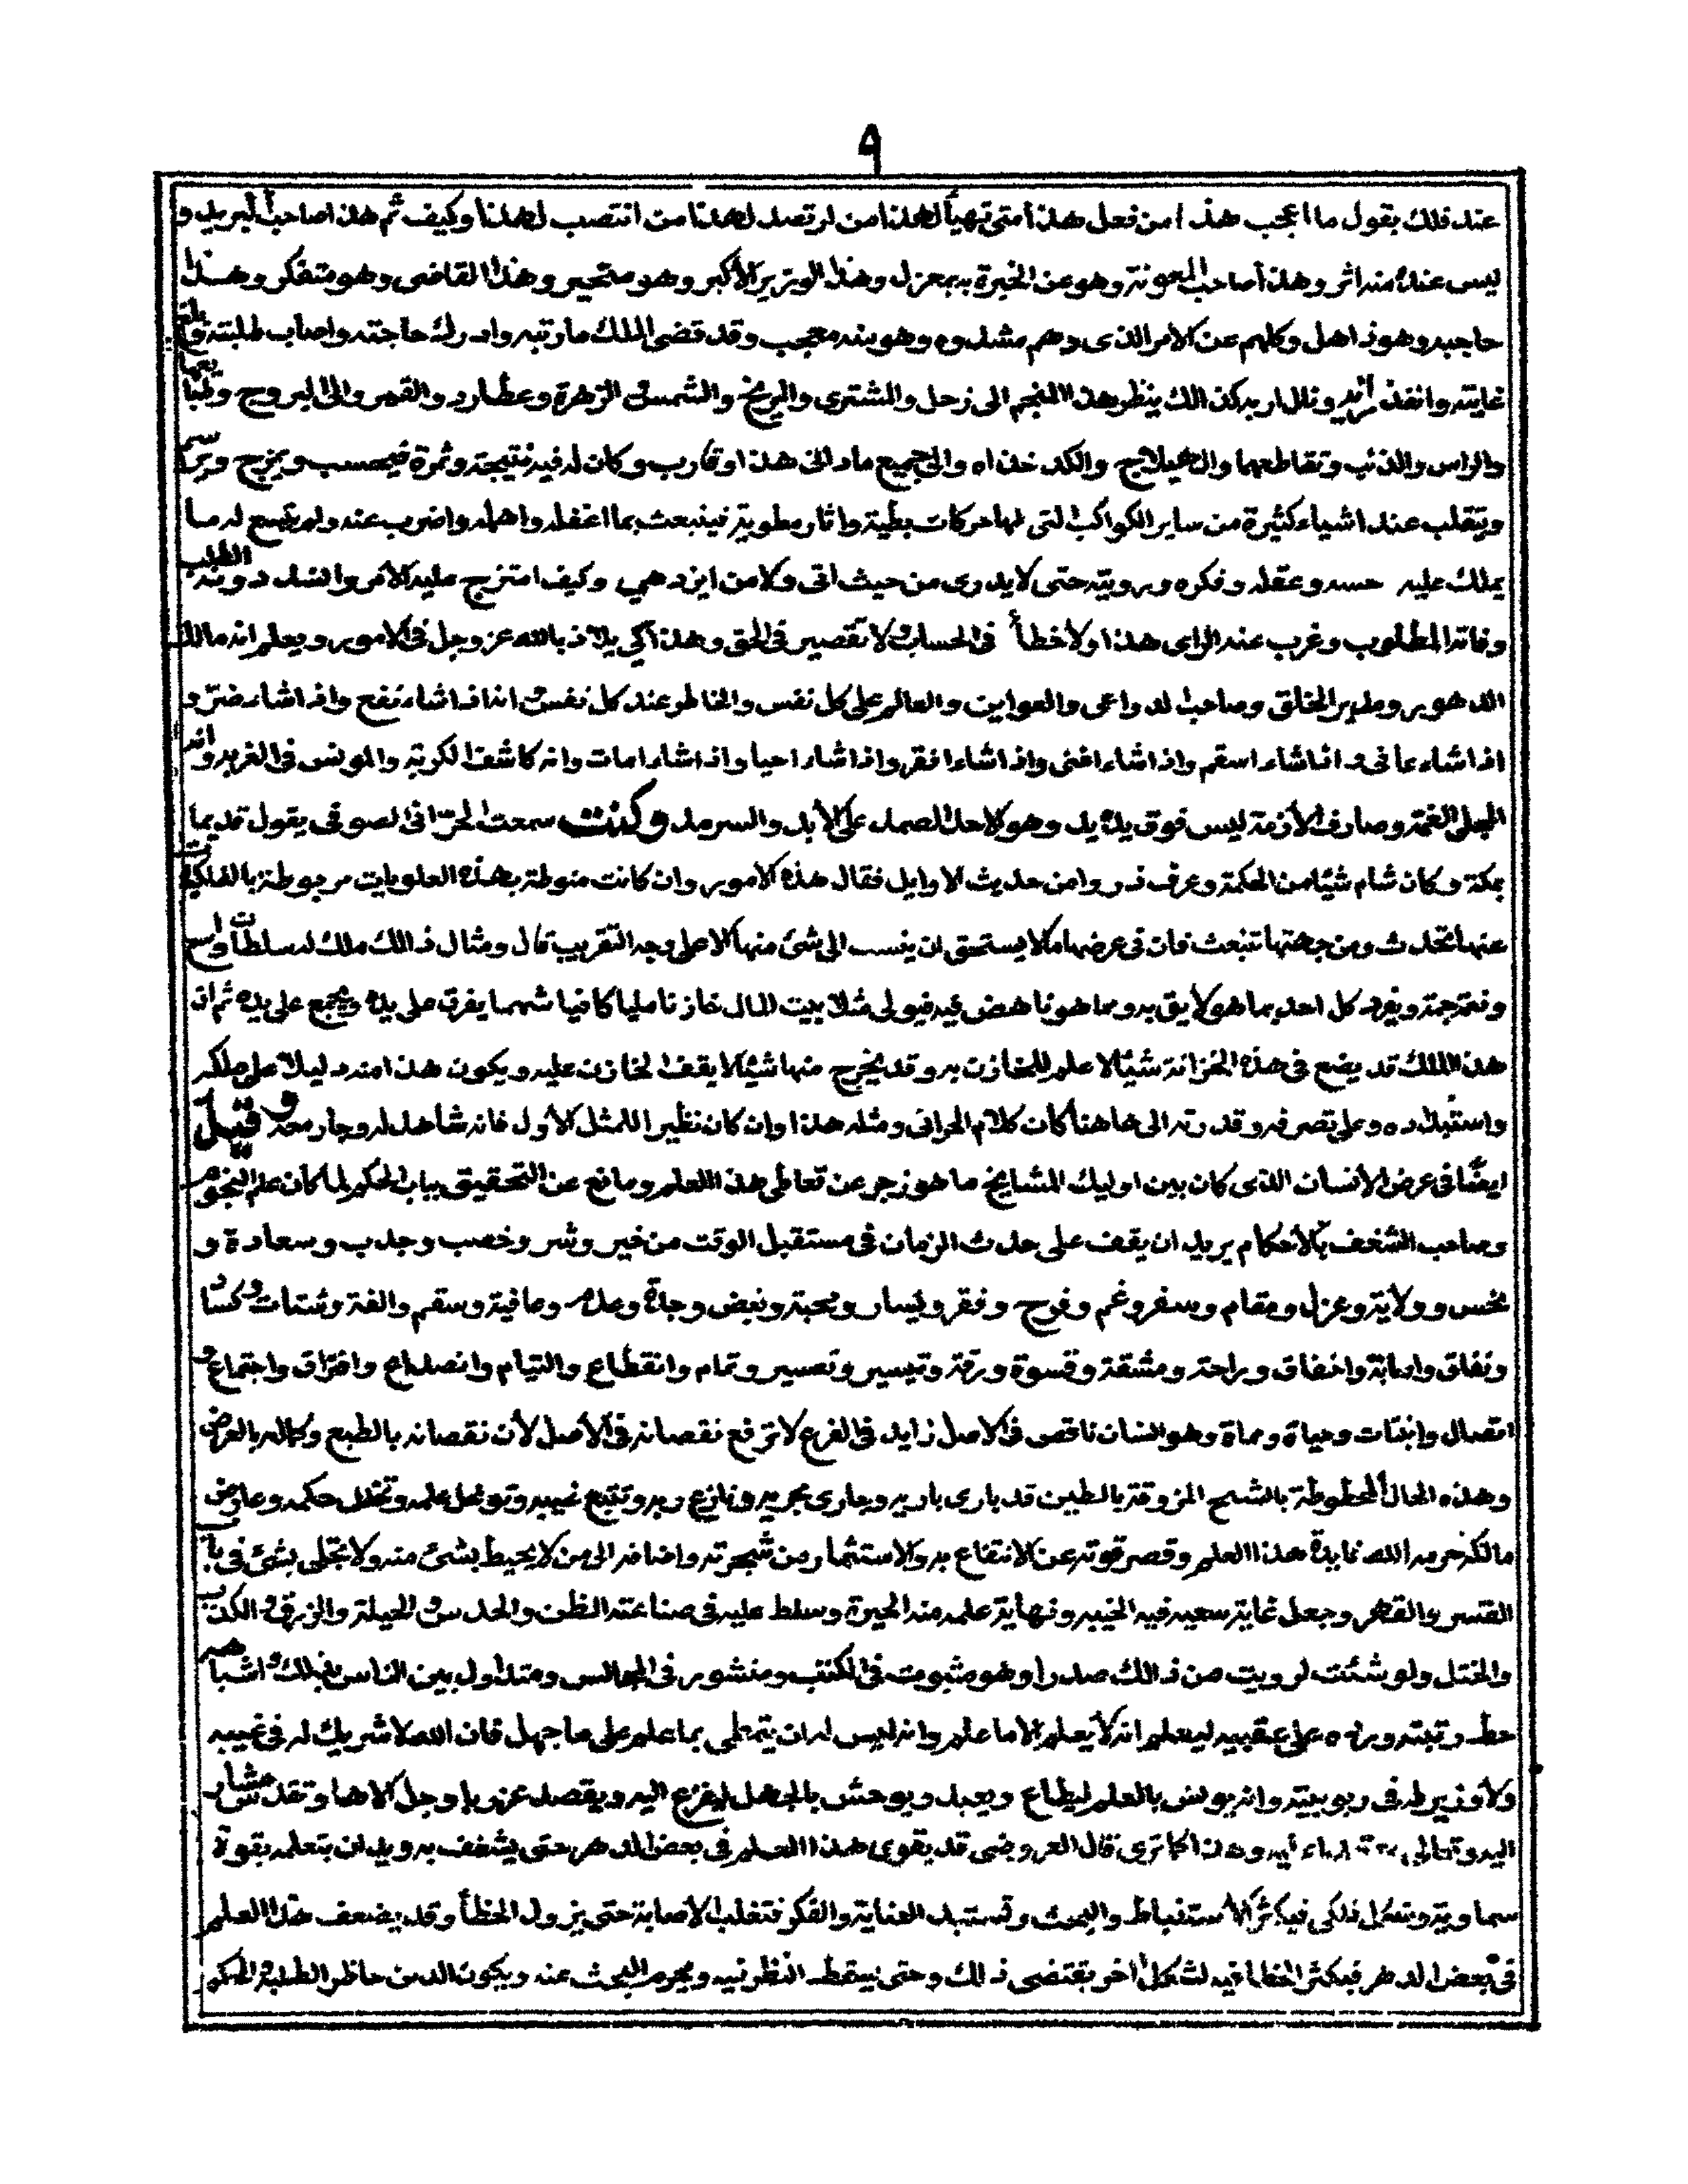 ٩
عند ذلك يقول ما اعجب هذا من فعل هذا متى تهيأ لهذا من لر تصد لهذا من انتصب لهذا وكيف ثم هذا صاحب البريد و
ليس عنده منه اثر وهذا صاحب المعونة وهو عن الخبرة به بمعزل وهذا الوزير الأكبر وهو متحير وهذا القاضى وهو متفكر وهذا
حاجبه وهو ذاهل وكلهم عن الامر الذى دهم مشدوه وهو منه متعجب وقد قضى الملك مارتبه وادرك حاجته واصاب طلبته
غايته وانفذ ونال اربه كذالك ينظر هذا المنجم الى زحل والمشترى والمريخ والشمس والزهرة وعطارد والقمر والى البروج وطبا يعها
والراس والذنب وتقاطعهما والهيلاج والكدخذاه والى جميع مادانى هذا وقارب وكان له فيه نتيجة وثمرة فيحسب ويمزج ويرسم
وتتقلب عند اشياء كثيرة من ساير الكواكب التى لها حركات بطيئة واثار مطوية فينبعث بما اغفله واهمله واضرب عنه ولم يتسع له ما
يملك عليه حسه وعقله وفكره ورويته حتى لايدرى من حيث اتى ولا من اين دهى وكيف امتزج عليه الامر وانسد دونه الطلب
وفاته المطلوب وغرب عنه الراى هذا ولا خطأ فى الحساب ولا تقصير فى الحق وهذا كى يلاذ بالله عز وجل فى الامور ويعلم انه مالك
الدهور ومدبر الخلائق وصاحب الدواعى والعوايق والعالم على كل نفس والخاطر عند كل نفس اذا شاء نفع واذا شاء ضر و
اذا شاء عافى واذا شاء اسقم واذا شاء اغنى واذا شاء افقر واذا شاء احيا واذا شاء امات وانه كاشف الكربة والمونس فى الغربة وانه
المجلى الغمة وصارف الأزمة ليس فوق يده يد وهو الاحد الصمد على الأبد والسرمد وكنت سمعت الحرانى الصوفى يقول قديما
بمكة وكان شام شيئا من الحكمة وعرف ذروا من حديث الاوايل فقال هذه الامور وان كانت منوطة بهذه العلويات مربوطة بالفلكيات
عنها تحدث ومن جهتها تنبعث فان فى عرضها مالا يستحق ان ينسب الى شئ منها الا على وجه التقريب قال ومثال ذالك ملك له سلطان واسع
ونعم جمة ويفرد كل احد بما هو لايق به وبما هو ناهض فيه فيولى مثلا بيت المال خازنا مليا كافيا شهما يفرق على يده ويجمع على يده ثم ان
هذا الملك قد يضع فى هذه الخزانة شيئا لا علم للخازن به وقد يخرج منها شيئا لا يقف الخازن عليه ويكون هذا منه دليلا على ملكه
واستبداده وعلى تصرفه وقدرته الى هاهنا كان كلام الحرانى ومثله هذا وان كان نظير اللمثل الأول فانه شاهد له وجار معه وقيل
ايضا فى عرض الأنسان الذى كان بين اوليك المشايخ ما هو زجر عن تعاطى هذا العلم ومانع عن التحقيق بباب الحكم لما كان علم النجوم
وصاحب الشغف بالأحكام يريد ان يقف على حدث الزمان فى مستقبل الوقت من خير وشر وخصب وجدب وسعادة و
نحس وولاية وعزل ومقام وسفر وغم وفرح وفقر ويسار ومحبة وبغض وجدة وعدم وعافية وسقم والفة وشتات وكساد
ونفاق واصابة واخفاق وراحة ومشقة وقسوة ورقة وتيسير وتعسير وتمام وانقطاع والتيام وانصداع وافتراق واجتماع و
اتصال وانبتات وحياة ومماة وهو انسان ناقص فى الاصل زايد فى الفرع لا ترفع نقصانه فى الأصل لأن نقصانه بالطبع وكماله بالعرض
وهذه الحال المحطوطة بالشبح المزوقة بالطين قد بارى باريه وجارى مجريه ونازع ربه وتتبع غيبه وتوغل علمه وتخلل حكمه وعارض
مالكه حرمه الله فايدة هذا العلم وقصر قوته عن الانتفاع به والاستثمار من شجرته واضافه الى من لايحيط بشئ منه ولا يتجلى بشئ فى باب
القسر والقهر وجعل غاية سعيه فيه الخيبه ونهاية علمه منه الحيرة وسلط عليه فى صناعته الظن والحدس والحيلة والزرق والكذب
والختل ولو شئت لرويت من ذالك صدرا وهو مثبوت فى الكتب ومنثور فى المجالس ومتداول بين الناس فبذلك واشباهه
حط رتبته ورده على عقبيه ليعلم انه لا يعلم الا ما علم وانه ليس له ان يتمطى بما علم على ما جهل فان الله لا شريك له فى غيبه
ولا وزير له فى ربوبيته وانه يونس بالعلم ليطاع ويعبد ويوحش بالجهل ليفزع اليه ويقصد عز ربا وجل الاها وتقدس مشار
اليه وتعالى وهذا كما ترى قال العروضى قد يقوى هذا العلم فى بعض الدهر حتى يشغف به ويدان بتعلمه بقوة
سماوية وشكل فلكى فيكثر الاستنباط والبحث وتستبد العناية والفكر فتغلب الاصابة حتى يزول الخطأ وقد يضعف هذا العلم
فى بعض الدهر فيكثر الخطا فيه لشكل اخر يقتضى ذلك وحتى يسقط النظر فيه ويحرم البحث عنه ويكون الدين حاظر الطلبة الحكم